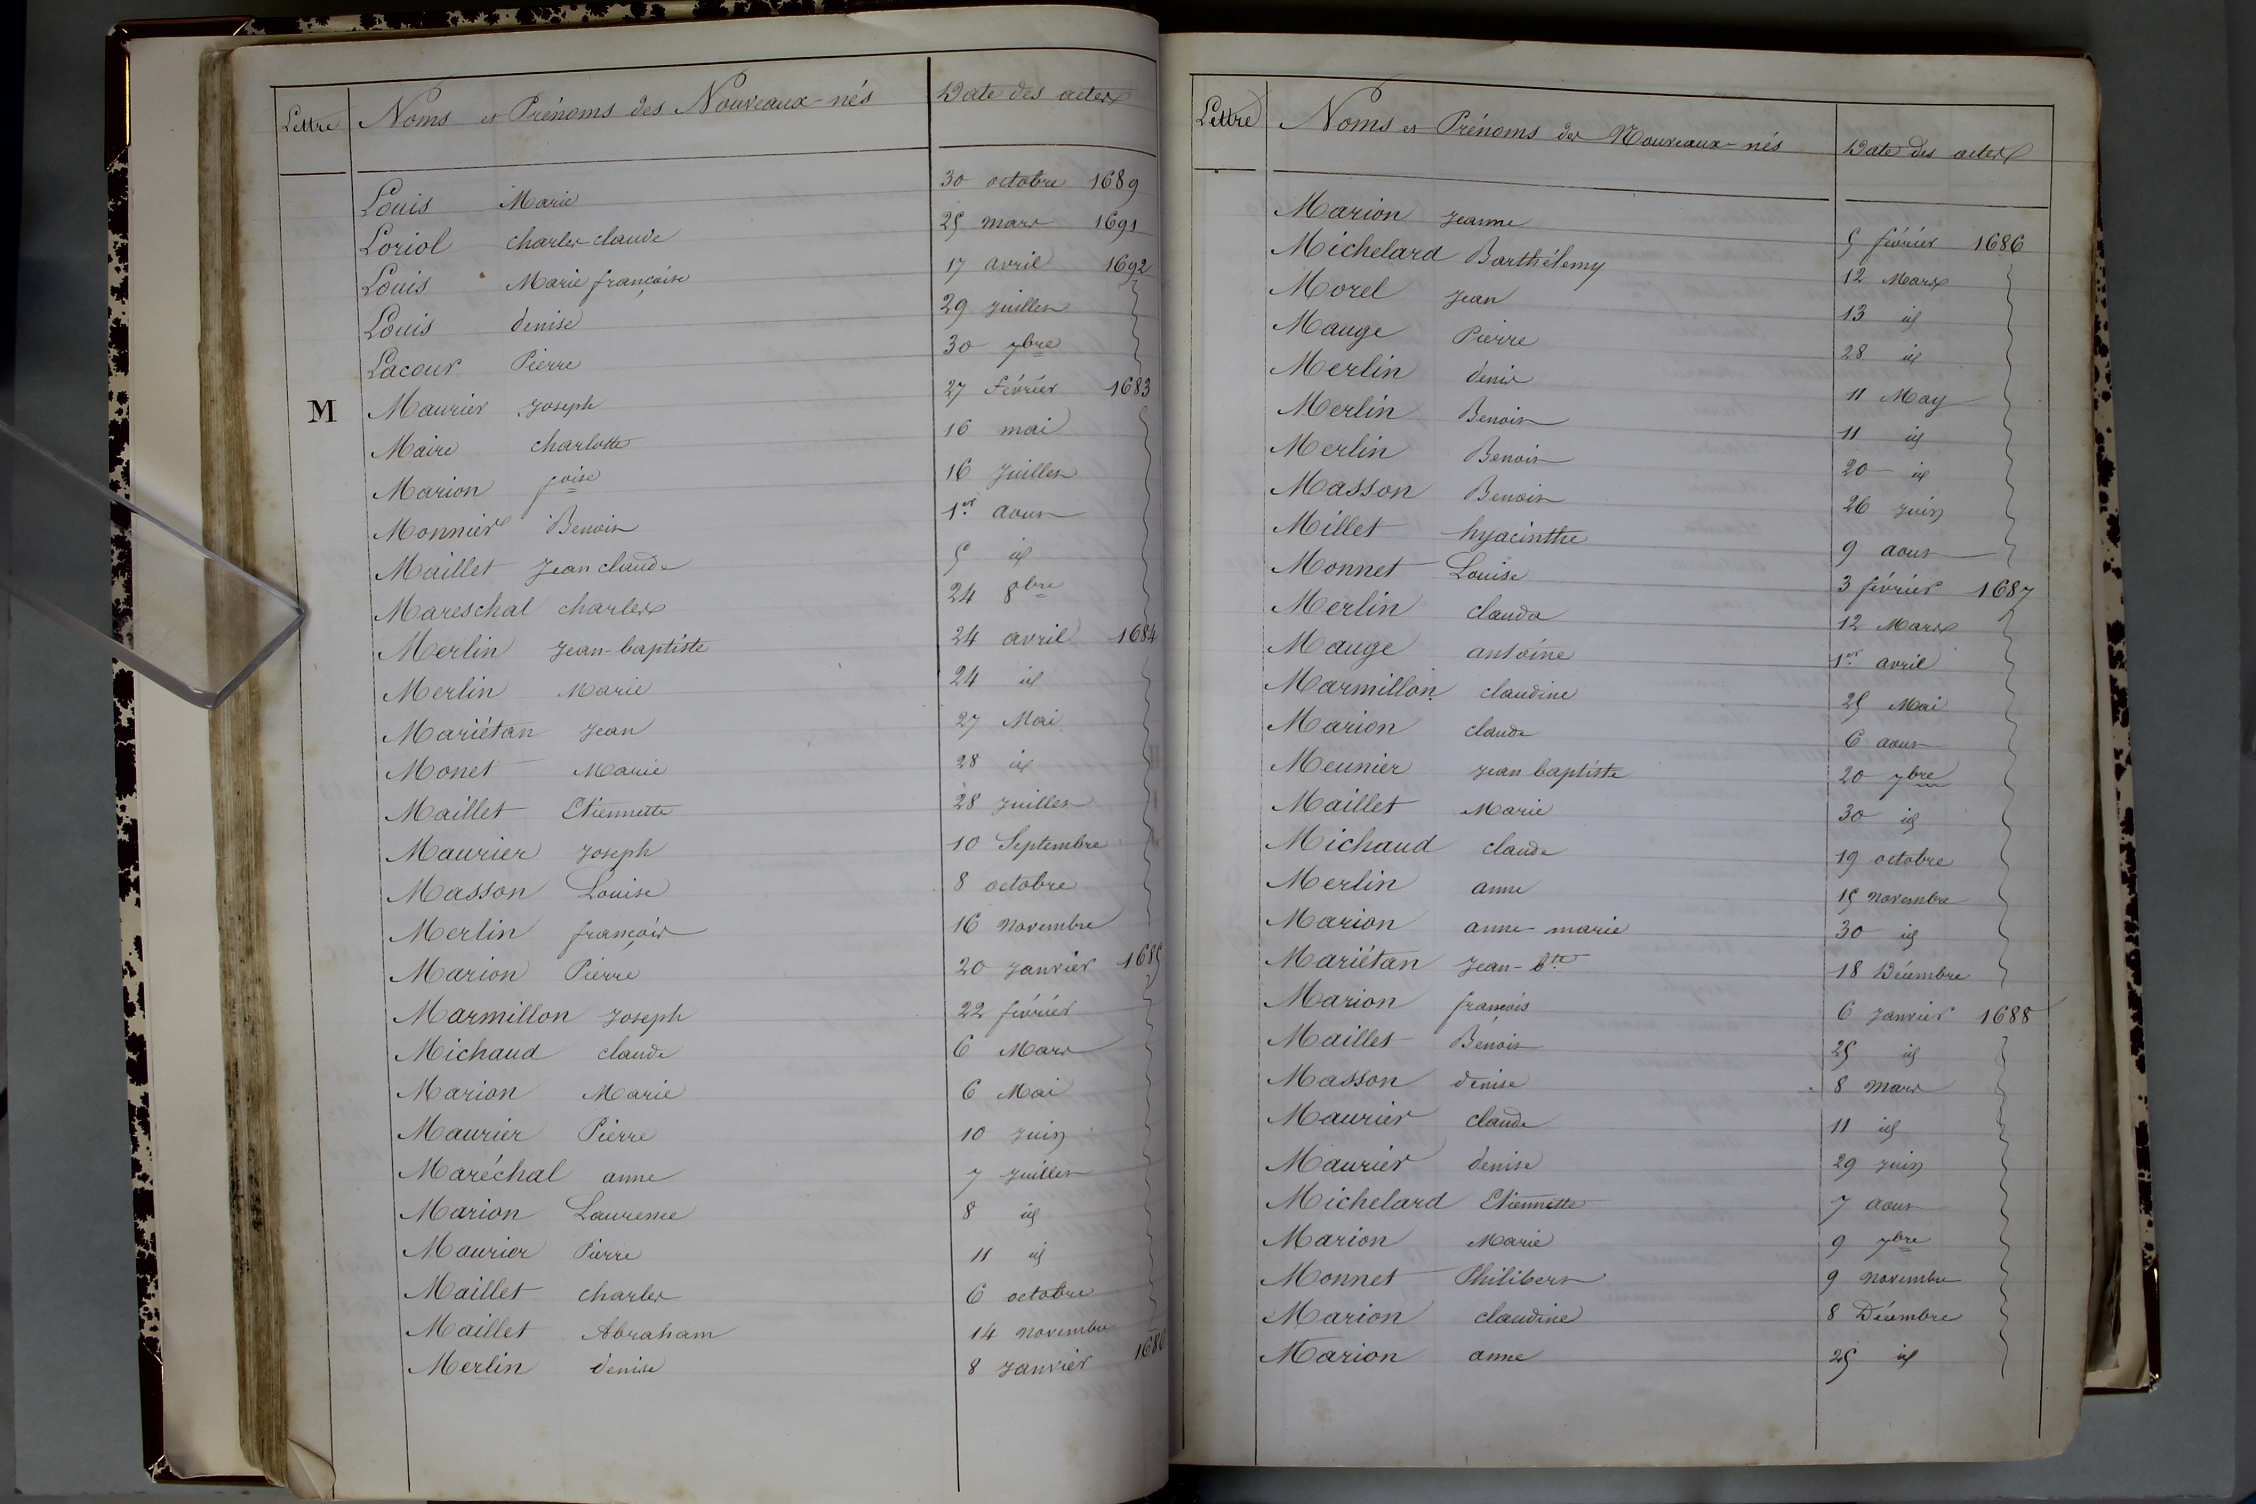 Lettre Noms et Prénoms des Nouveaux-nés Date des actes
Louis Marie 30 octobre 1689
Loriol charles claude 25 mars 1691
Louis Marie françoise 17 avril 1692
Louis denise 29 juillet
Lacour Pierre 30 7bre
M Maurier Joseph 27 Février 1683
Maire charlotte 16 mai
Marion foise 16 juillet
Monnier Benoit 1er aout
Maillet Jean claude 5 id
Mareschal charles 24 8bre
Merlin Jean-baptiste 24 avril 1684
Merlin Marie 24 id
Mariétan Jean 27 Mai
Monet Marie 28 id
Maillet Etiennette 28 juillet
Maurier Joseph 10 Septembre
Masson Louise 8 octobre
Merlin françois 16 novembre
Marion Pierre 20 janvier 1685
Marmillon Joseph 22 février
Michaud claude 6 Mars
Marion Marie 6 Mai
Maurier Pierre 10 juin
Maréchal anne 7 juillet
Marion Laurence 8 id
Maurier Pierre 11 id
Maillet charles 6 octobre
Maillet Abraham 14 novembre
Merlin denise 8 janvier 1686
Lettre Noms et Prénoms des Nouveaux-nés Date des actes
Marion Jeanne 5 février 1686
Michelard Barthélemy 12 Mars
Morel Jean 13 id
Mauge Pierre 28 id
Merlin denis 11 May
Merlin Benoit 11 id
Merlin Benoit 20 id
Masson Benoit 26 juin
Millet hyacinthe 9 aout
Monnet Louise 3 février 1687
Merlin clauda 12 Mars
Mauge antoine 1er avril
Marmillon claudine 25 Mai
Marion claude 6 aout
Meunier Jean baptiste 20 7bre
Maillet Marie 30 id
Michaud claude 19 octobre
Merlin anne 15 novembre
Marion anne-marie 30 id
Mariétan Jean-bte 18 Décembre
Marion françois 6 janvier 1688
Maillet Benoit 25 id
Masson denise 8 mars
Maurier claude 11 id
Maurier denise 29 juin
Michelard Etiennette 7 aout
Marion Marie 9 7bre
Monnet Philibert 9 novembre
Marion claudine 8 Décembre
Marion anne 25 id